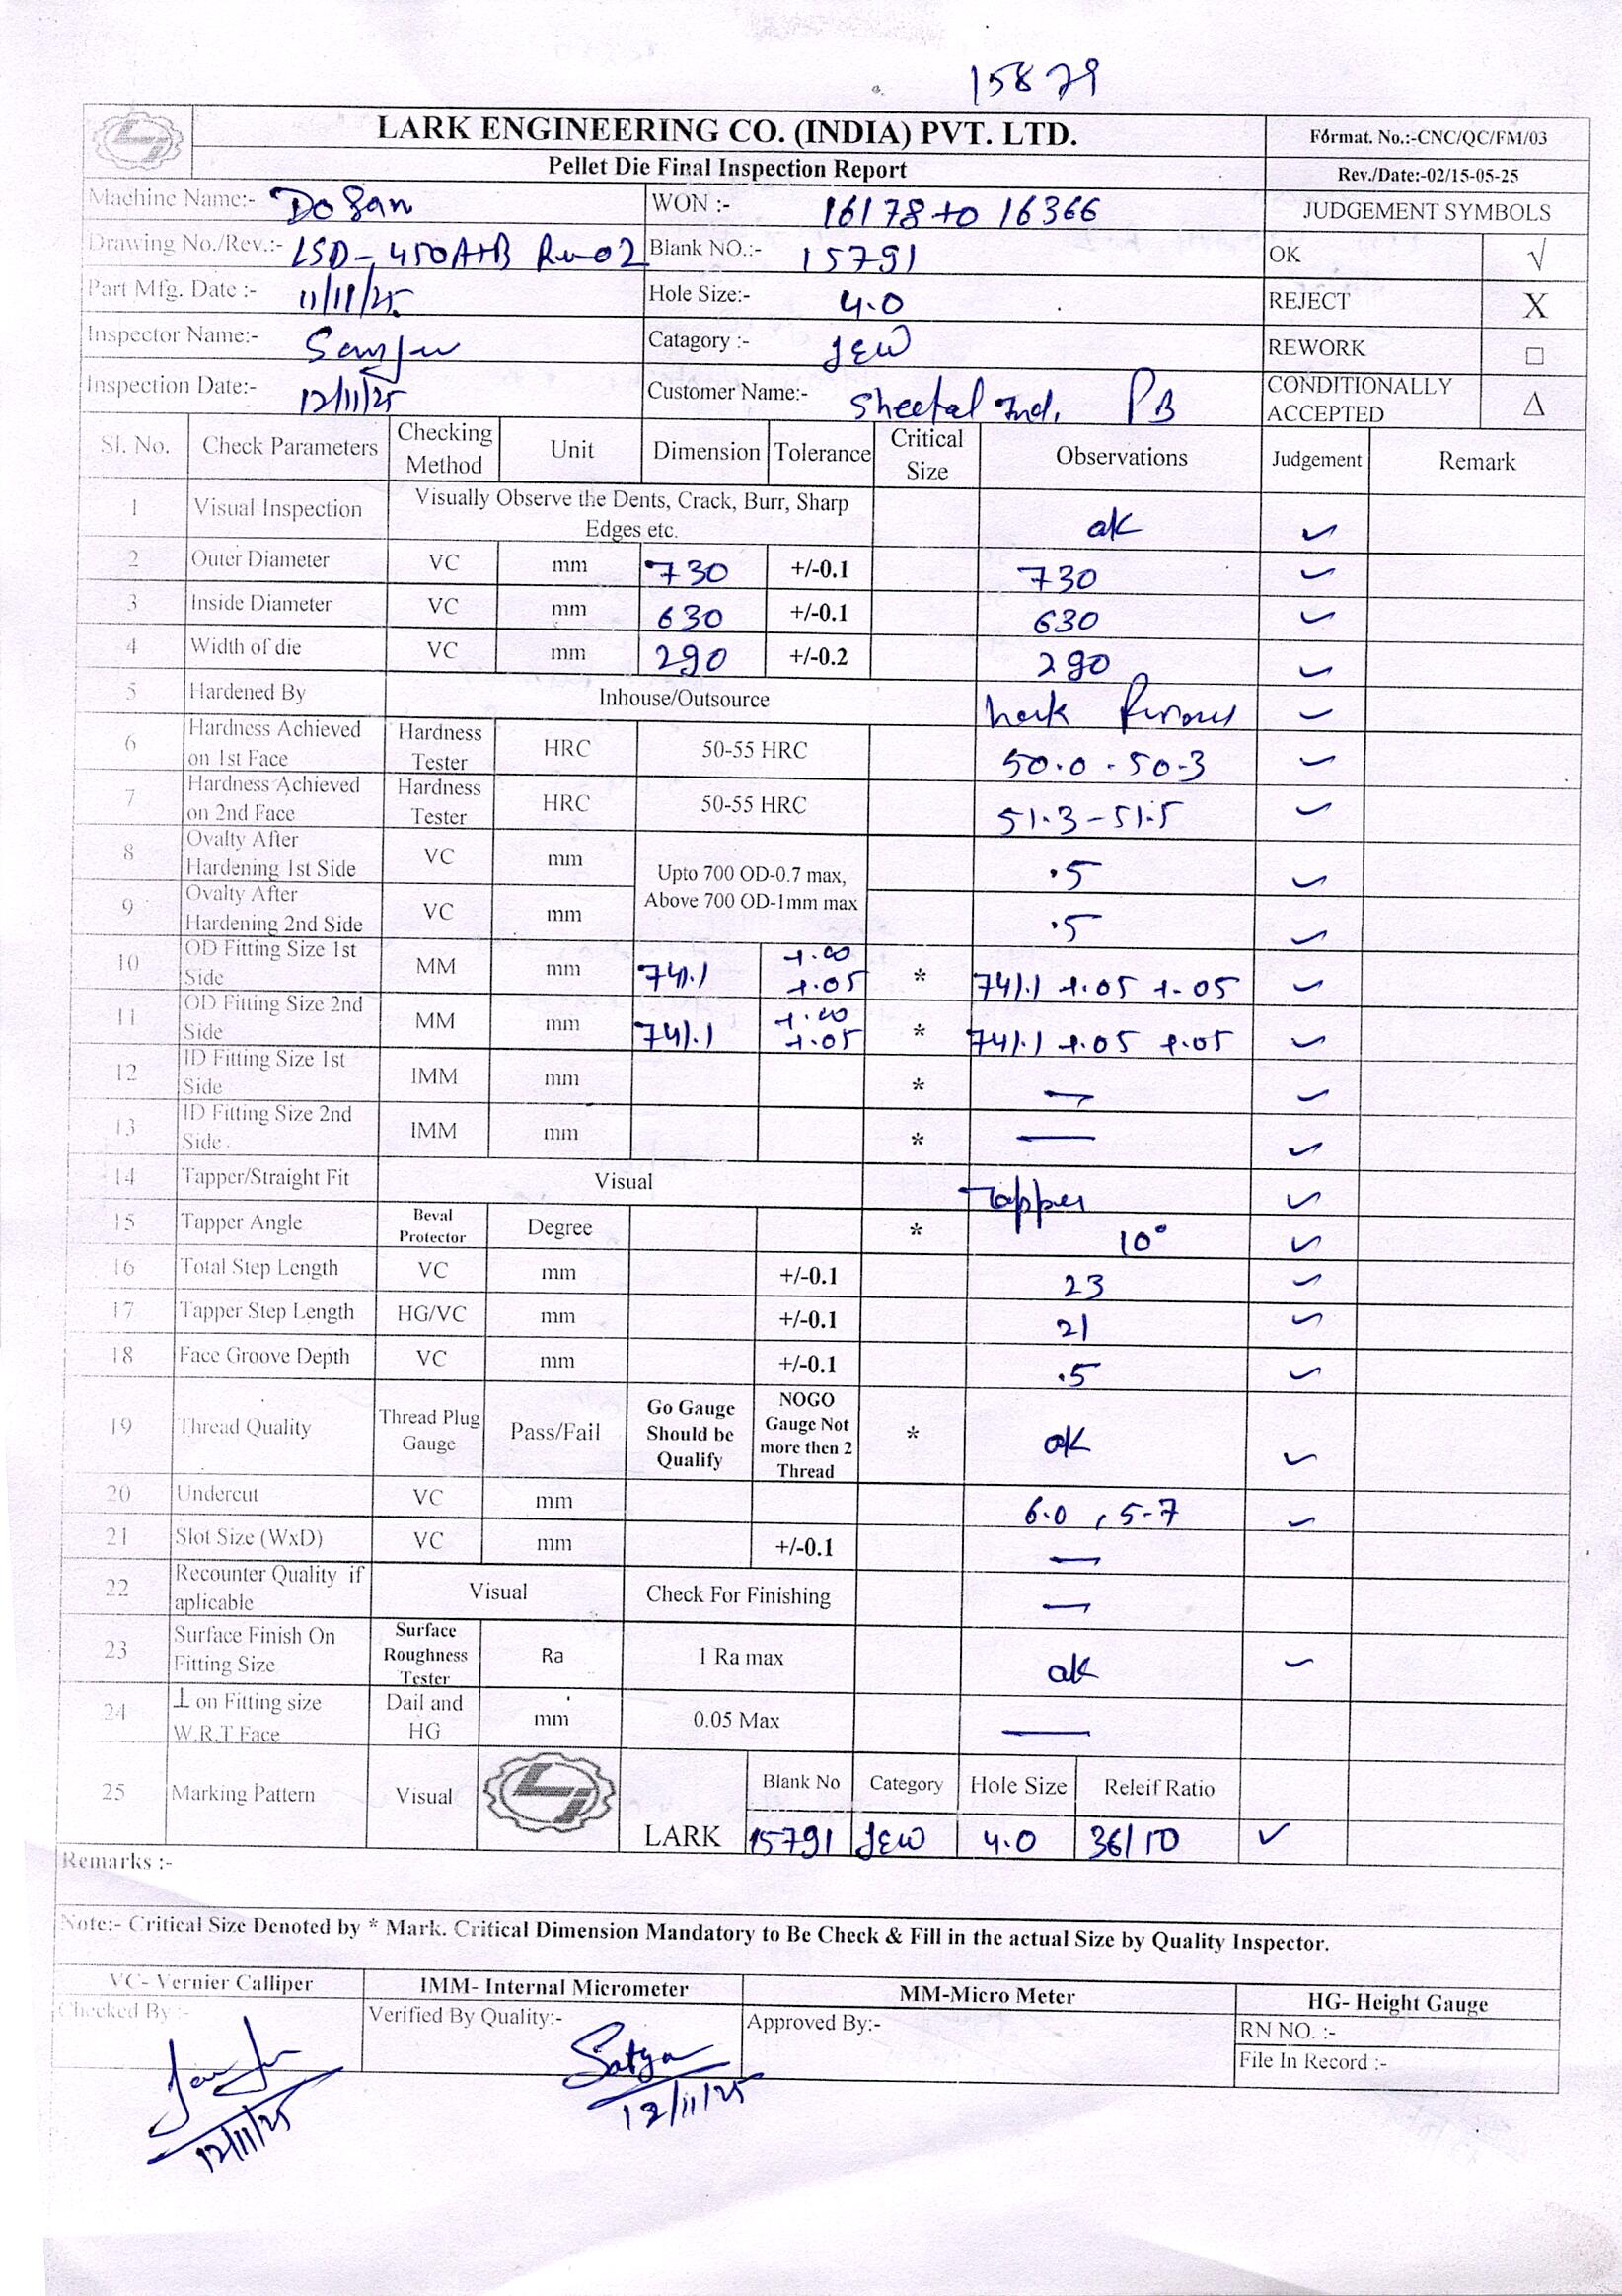 15879
LARK ENGINEERING CO. (INDIA) PVT. LTD.
Format. No.:-CNC/QC/FM/03
Pellet Die Final Inspection Report
Rev./Date:-02/15-05-25
Machine Name:- Dosan WON :- 16178 to 16366 JUDGEMENT SYMBOLS
Drawing No./Rev.:- LSD-450A+B Rev-02 Blank NO.:- 15791 OK √
Part Mfg. Date :- 11/11/25 Hole Size:- 4.0 REJECT X
Inspector Name:- Sanjeev Catagory :- LEW REWORK □
Inspection Date:- 12/11/25 Customer Name:- Sheetal Ind. PB CONDITIONALLY ACCEPTED Δ
Sl. No. Check Parameters Checking Method Unit Dimension Tolerance Critical Size Observations Judgement Remark
1 Visual Inspection Visually Observe the Dents, Crack, Burr, Sharp Edges etc. ok ✓
2 Outer Diameter VC mm 730 +/-0.1 730 ✓
3 Inside Diameter VC mm 630 +/-0.1 630 ✓
4 Width of die VC mm 290 +/-0.2 290 ✓
5 Hardened By Inhouse/Outsource ✓
6 Hardness Achieved on 1st Face Hardness Tester HRC 50-55 HRC 50.0 - 50.3 ✓
7 Hardness Achieved on 2nd Face Hardness Tester HRC 50-55 HRC 51.3-51.5 ✓
8 Ovalty After Hardening 1st Side VC mm Upto 700 OD-0.7 max, Above 700 OD-1mm max .5 ✓
9 Ovalty After Hardening 2nd Side VC mm .5 ✓
10 OD Fitting Size 1st Side MM mm 741.1 +.00 +.05 * 741.1 +.05 +.05 ✓
11 OD Fitting Size 2nd Side MM mm 741.1 +.00 +.05 * 741.1 +.05 +.05 ✓
12 ID Fitting Size 1st Side IMM mm * — ✓
13 ID Fitting Size 2nd Side IMM mm * — ✓
14 Tapper/Straight Fit Visual Tapper ✓
15 Tapper Angle Beval Protector Degree * 10° ✓
16 Total Step Length VC mm +/-0.1 23 ✓
17 Tapper Step Length HG/VC mm +/-0.1 21 ✓
18 Face Groove Depth VC mm +/-0.1 .5 ✓
19 Thread Quality Thread Plug Gauge Pass/Fail Go Gauge Should be Qualify NOGO Gauge Not more then 2 Thread * ok ✓
20 Undercut VC mm 6.0 , 5-7 ✓
21 Slot Size (WxD) VC mm +/-0.1 —
22 Recounter Quality if aplicable Visual Check For Finishing —
23 Surface Finish On Fitting Size Surface Roughness Tester Ra 1 Ra max ok ✓
24 ⊥ on Fitting size W.R.T Face Dail and HG mm 0.05 Max —
25 Marking Pattern Visual LARK Blank No Category Hole Size Releif Ratio
15791 LEW 4.0 36/10 ✓
Remarks :-
Note:- Critical Size Denoted by * Mark. Critical Dimension Mandatory to Be Check & Fill in the actual Size by Quality Inspector.
VC- Vernier Calliper IMM- Internal Micrometer MM-Micro Meter HG- Height Gauge
Checked By :- Verified By Quality:- Approved By:- RN NO. :-
File In Record :-
Satya
12/11/25
12/11/25